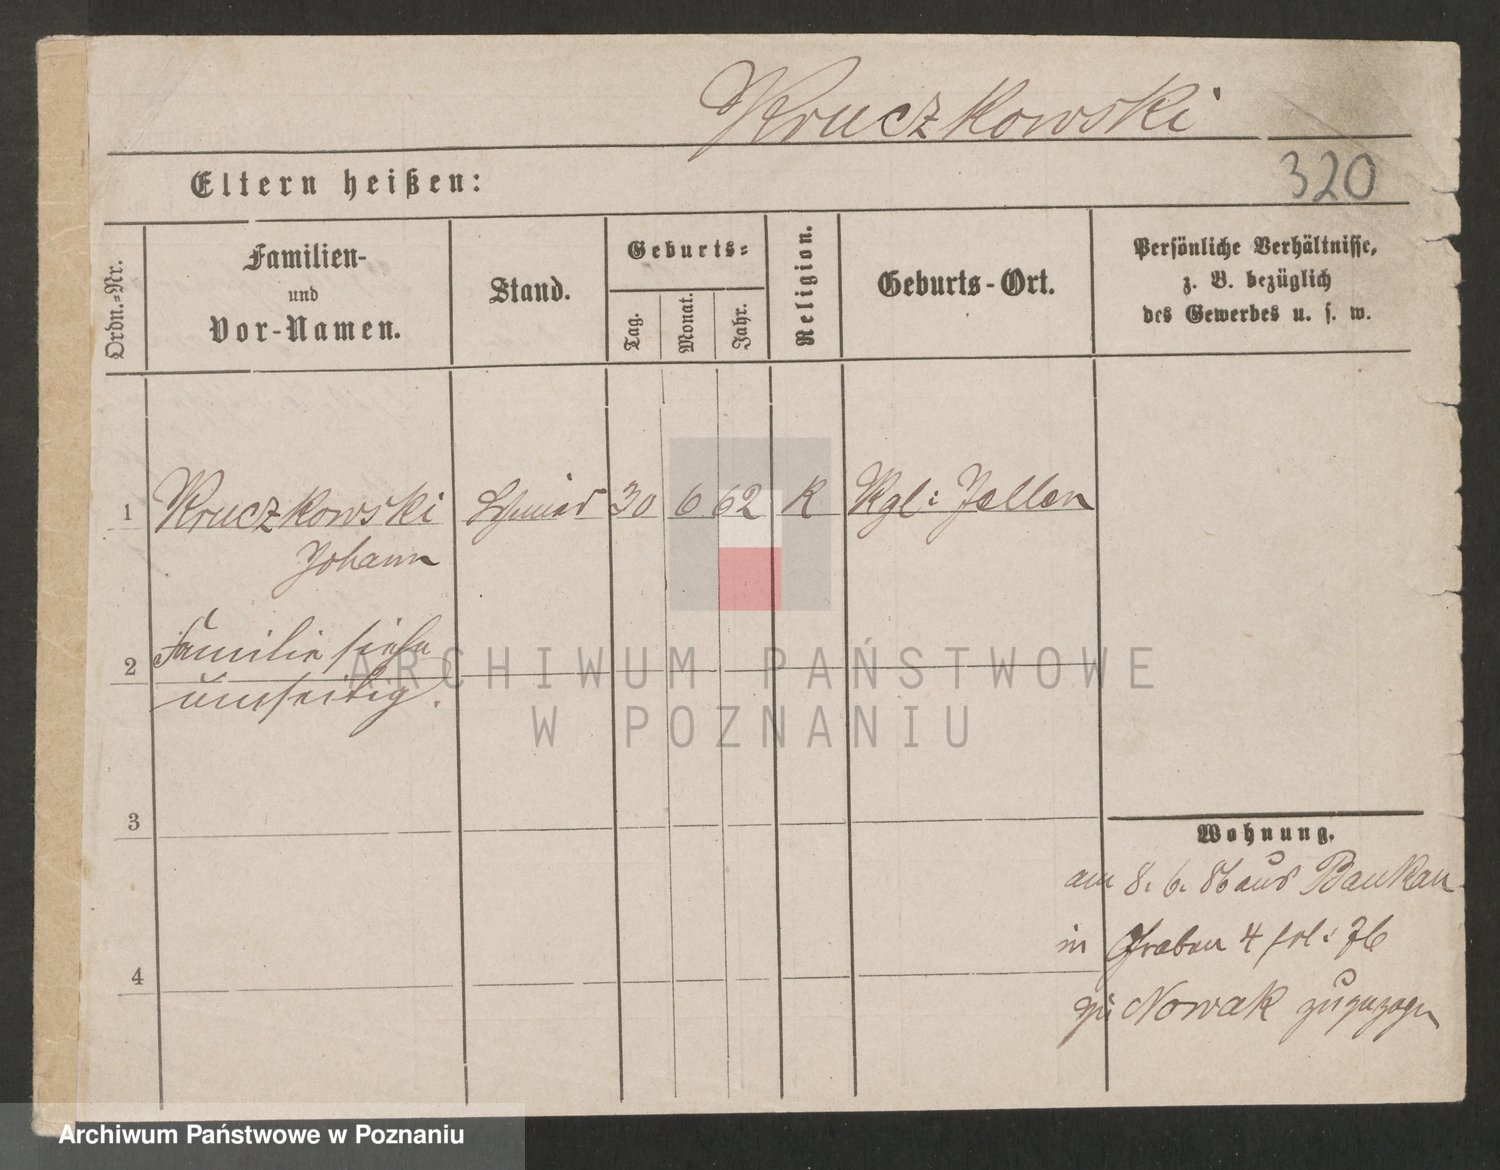 Kruczkowski
320
Eltern heißen:
Ordn.=Nr.
Familien-
und
Vor-Namen.
Stand.
Geburts=
Tag.
Monat.
Jahr.
Religion.
Geburts-Ort.
Persönliche Verhältnisse,
z. B. bezüglich
des Gewerbes u. s. w.
1 Kruczkowski Schmied 30 6 62 K Kgl:
Johann
2 Familie siehe
umseitig.
3
4
Wohnung.
am 8. 6. 86 aus
in Graben 4 fol:
zu Nowak zugezogen
ARCHIWUM PAŃSTWOWE
W POZNANIU
Archiwum Państwowe w Poznaniu